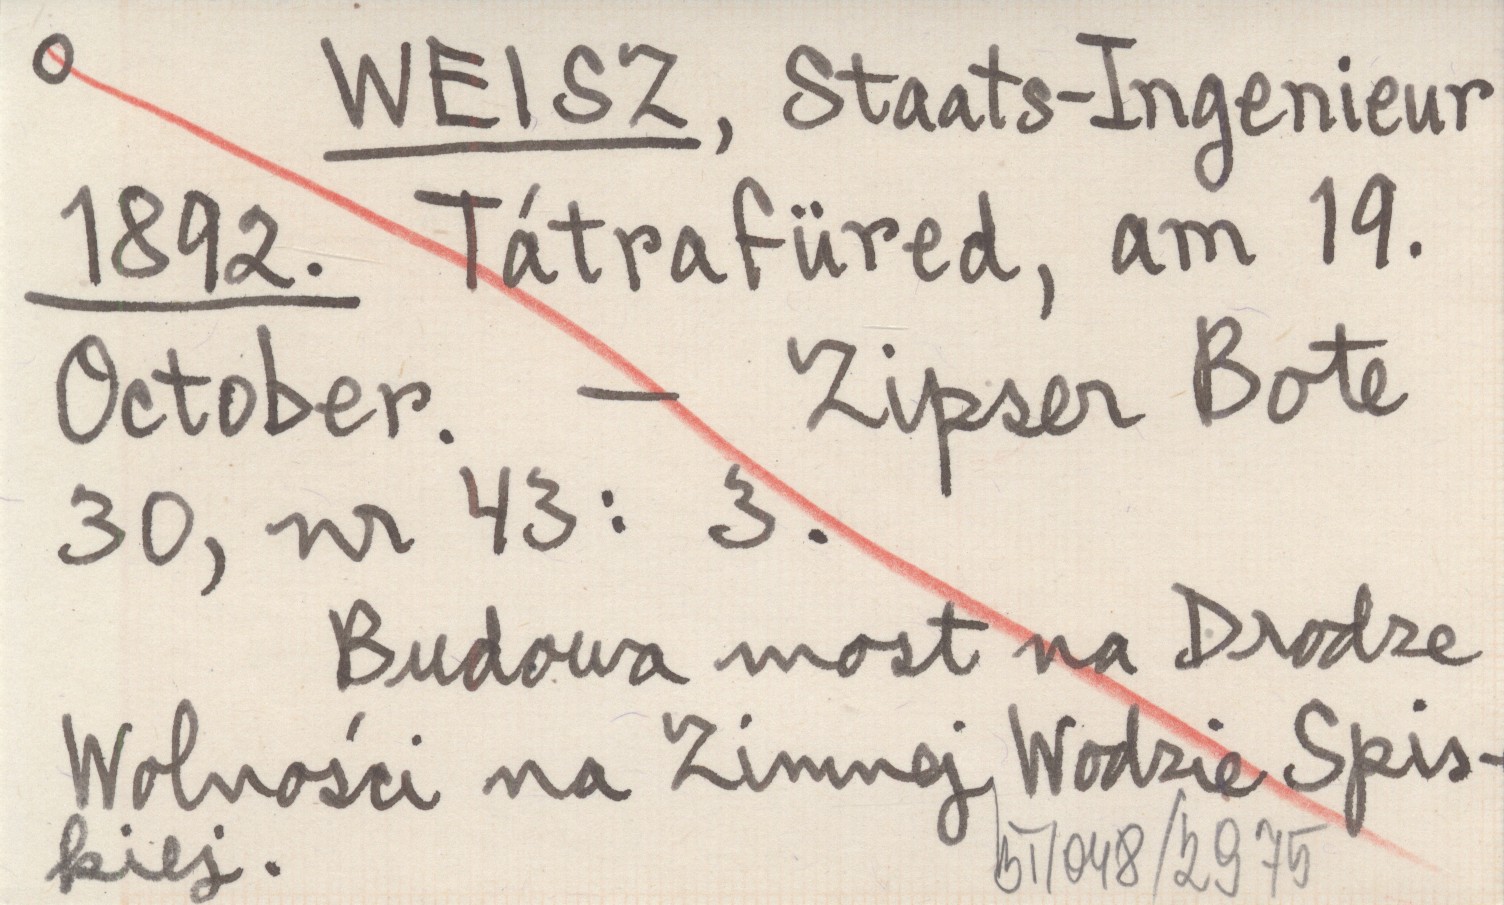 WEISZ, Staats-Ingenieur
1892. Tátrafüred, am 19.
October. — Zipser Bote
30, nr 43: 3.
Budowa most na Drodze
Wolności na Zimnej Wodzie Spis-
kiej.